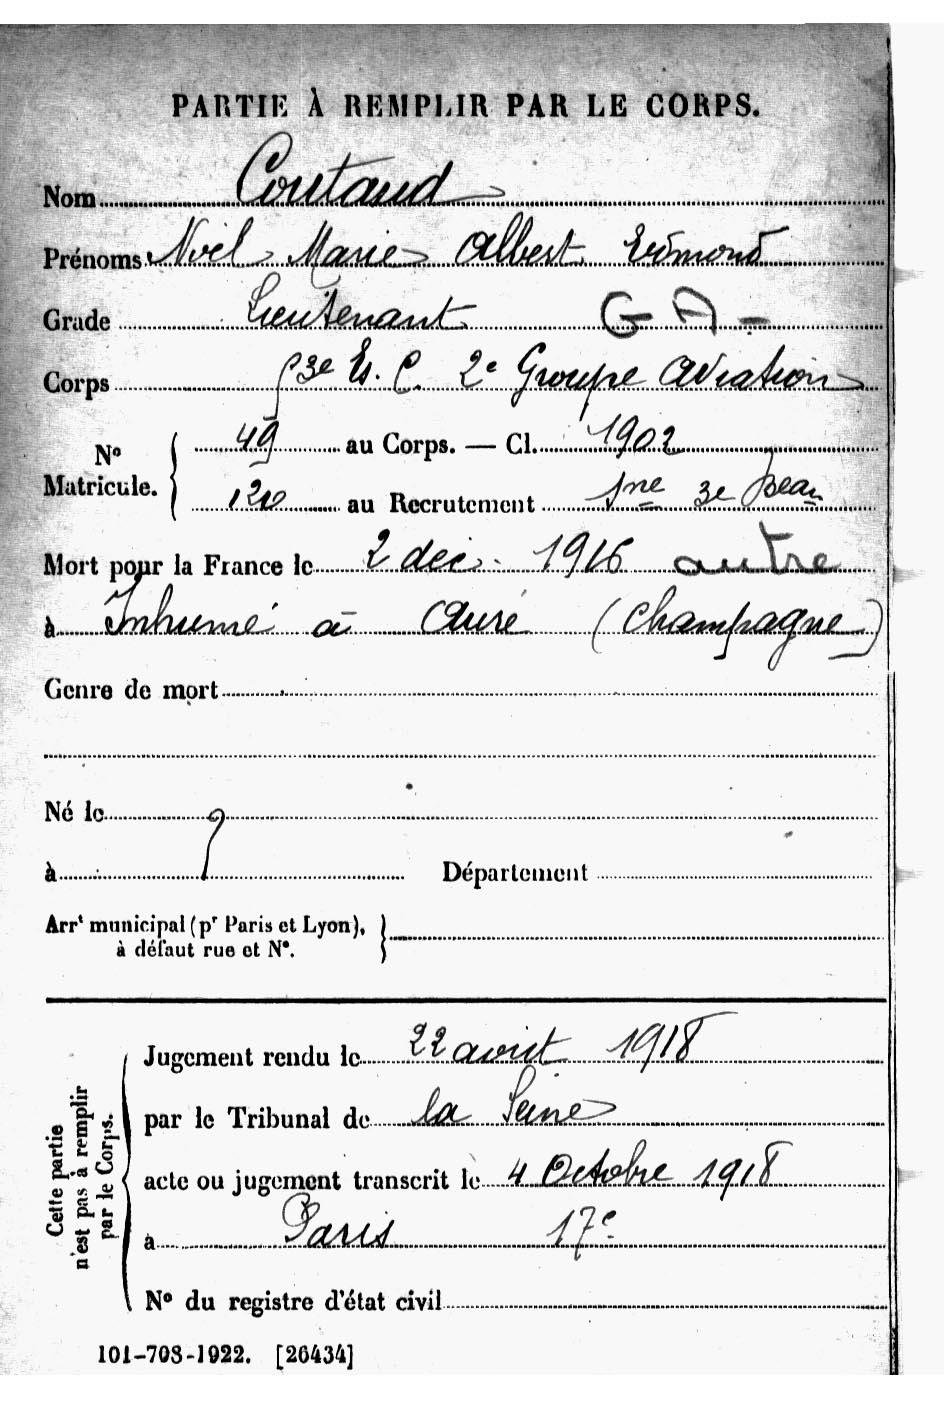 PARTIE À REMPLIR PAR LE CORPS.
Nom Coutaud
Prénoms Noël Marie Albert Edmond
Grade Lieutenant G A -
Corps 3e Es. C. 2e Groupe Aviation
No Matricule. 49 au Corps. — Cl. 1902
120 au Recrutement Sne 3e Beau
Mort pour la France le 2 déc. 1916 autre
à Inhumé à Auré (Champagne)
Genre de mort
Né le
à ? Département
Arrt municipal (pr Paris et Lyon),
à défaut rue et No.
Cette partie
n'est pas à remplir
par le Corps.
Jugement rendu le 22 avril 1918
par le Tribunal de la Seine
acte ou jugement transcrit le 4 Octobre 1918
à Paris 17e
No du registre d'état civil
101-708-1922. [26434]